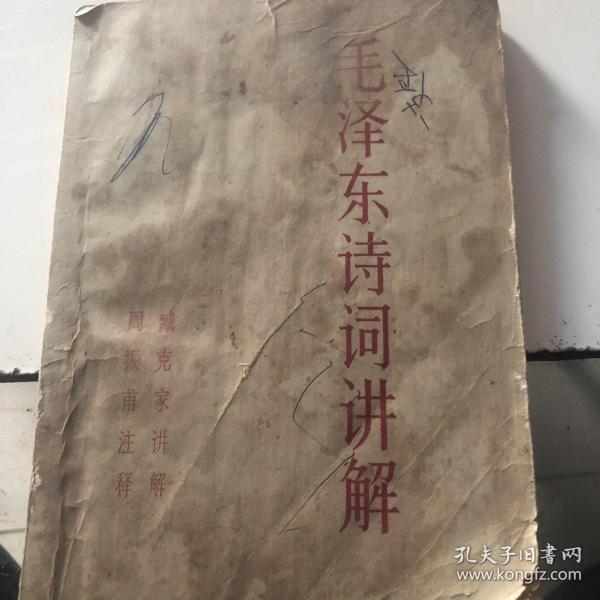 毛泽东诗词讲解
臧克家讲解
周振甫注释
孔夫子旧书网
www.kongfz.com